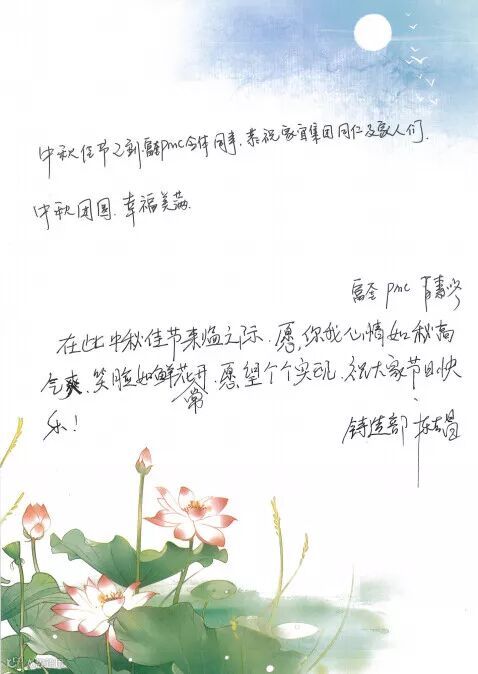 中秋佳节之刻.富圣pmc全体同事.恭祝家宜集团同仁及家人们.
中秋团圆.幸福美满.
富圣 pmc
在此中秋佳节来临之际.愿,你我心情如秋高
气爽、笑脸如鲜花常开.愿望个个实现.祝大家节日快
乐!
铸造部